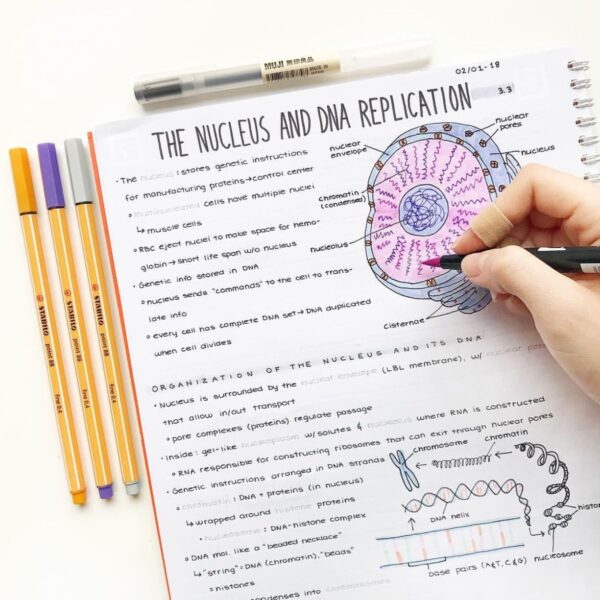 MUJI 無印良品
MADE IN JAPAN
02/01-18
3.3
THE NUCLEUS AND DNA REPLICATION
• The nucleus : stores genetic instructions
for manufacturing proteins → control center
o multinucleated cells have multiple nuclei
↳ muscle cells
o RBC eject nuclei to make space for hemo-
globin → short life span w/o nucleus
• Genetic info stored in DNA
o nucleus sends "commands" to the cell to trans-
late info
o every cell has complete DNA set → DNA duplicated
when cell divides
nuclear envelope
nuclear pores
nucleus
chromatin (condensed)
nucleolus
Cisternae
STABILO point 88 fine 0.4
STABILO point 88 fine 0.4
STABILO point 88 fine 0.4
ORGANIZATION OF THE NUCLEUS AND ITS DNA
• Nucleus is surrounded by the nuclear envelope (LBL membrane), w/ nuclear
that allow in/out transport
o pore complexes (proteins) regulate passage
• Inside : gel-like nucleoplasm w/ solutes & nucleolus where RNA is constructed
o RNA responsible for constructing ribosomes that can exit through nuclear pores
• Genetic instructions arranged in DNA strands
o chromatin : DNA + proteins (in nucleus)
↳ wrapped around histone proteins
• nucleosome : DNA-histone complex
o DNA mol. like a "beaded necklace"
↳ "string" = DNA (chromatin), "beads"
= histones
condenses into chromosomes
chromosome
chromatin
DNA helix
nucleosome
base pairs (A&T, C&G)